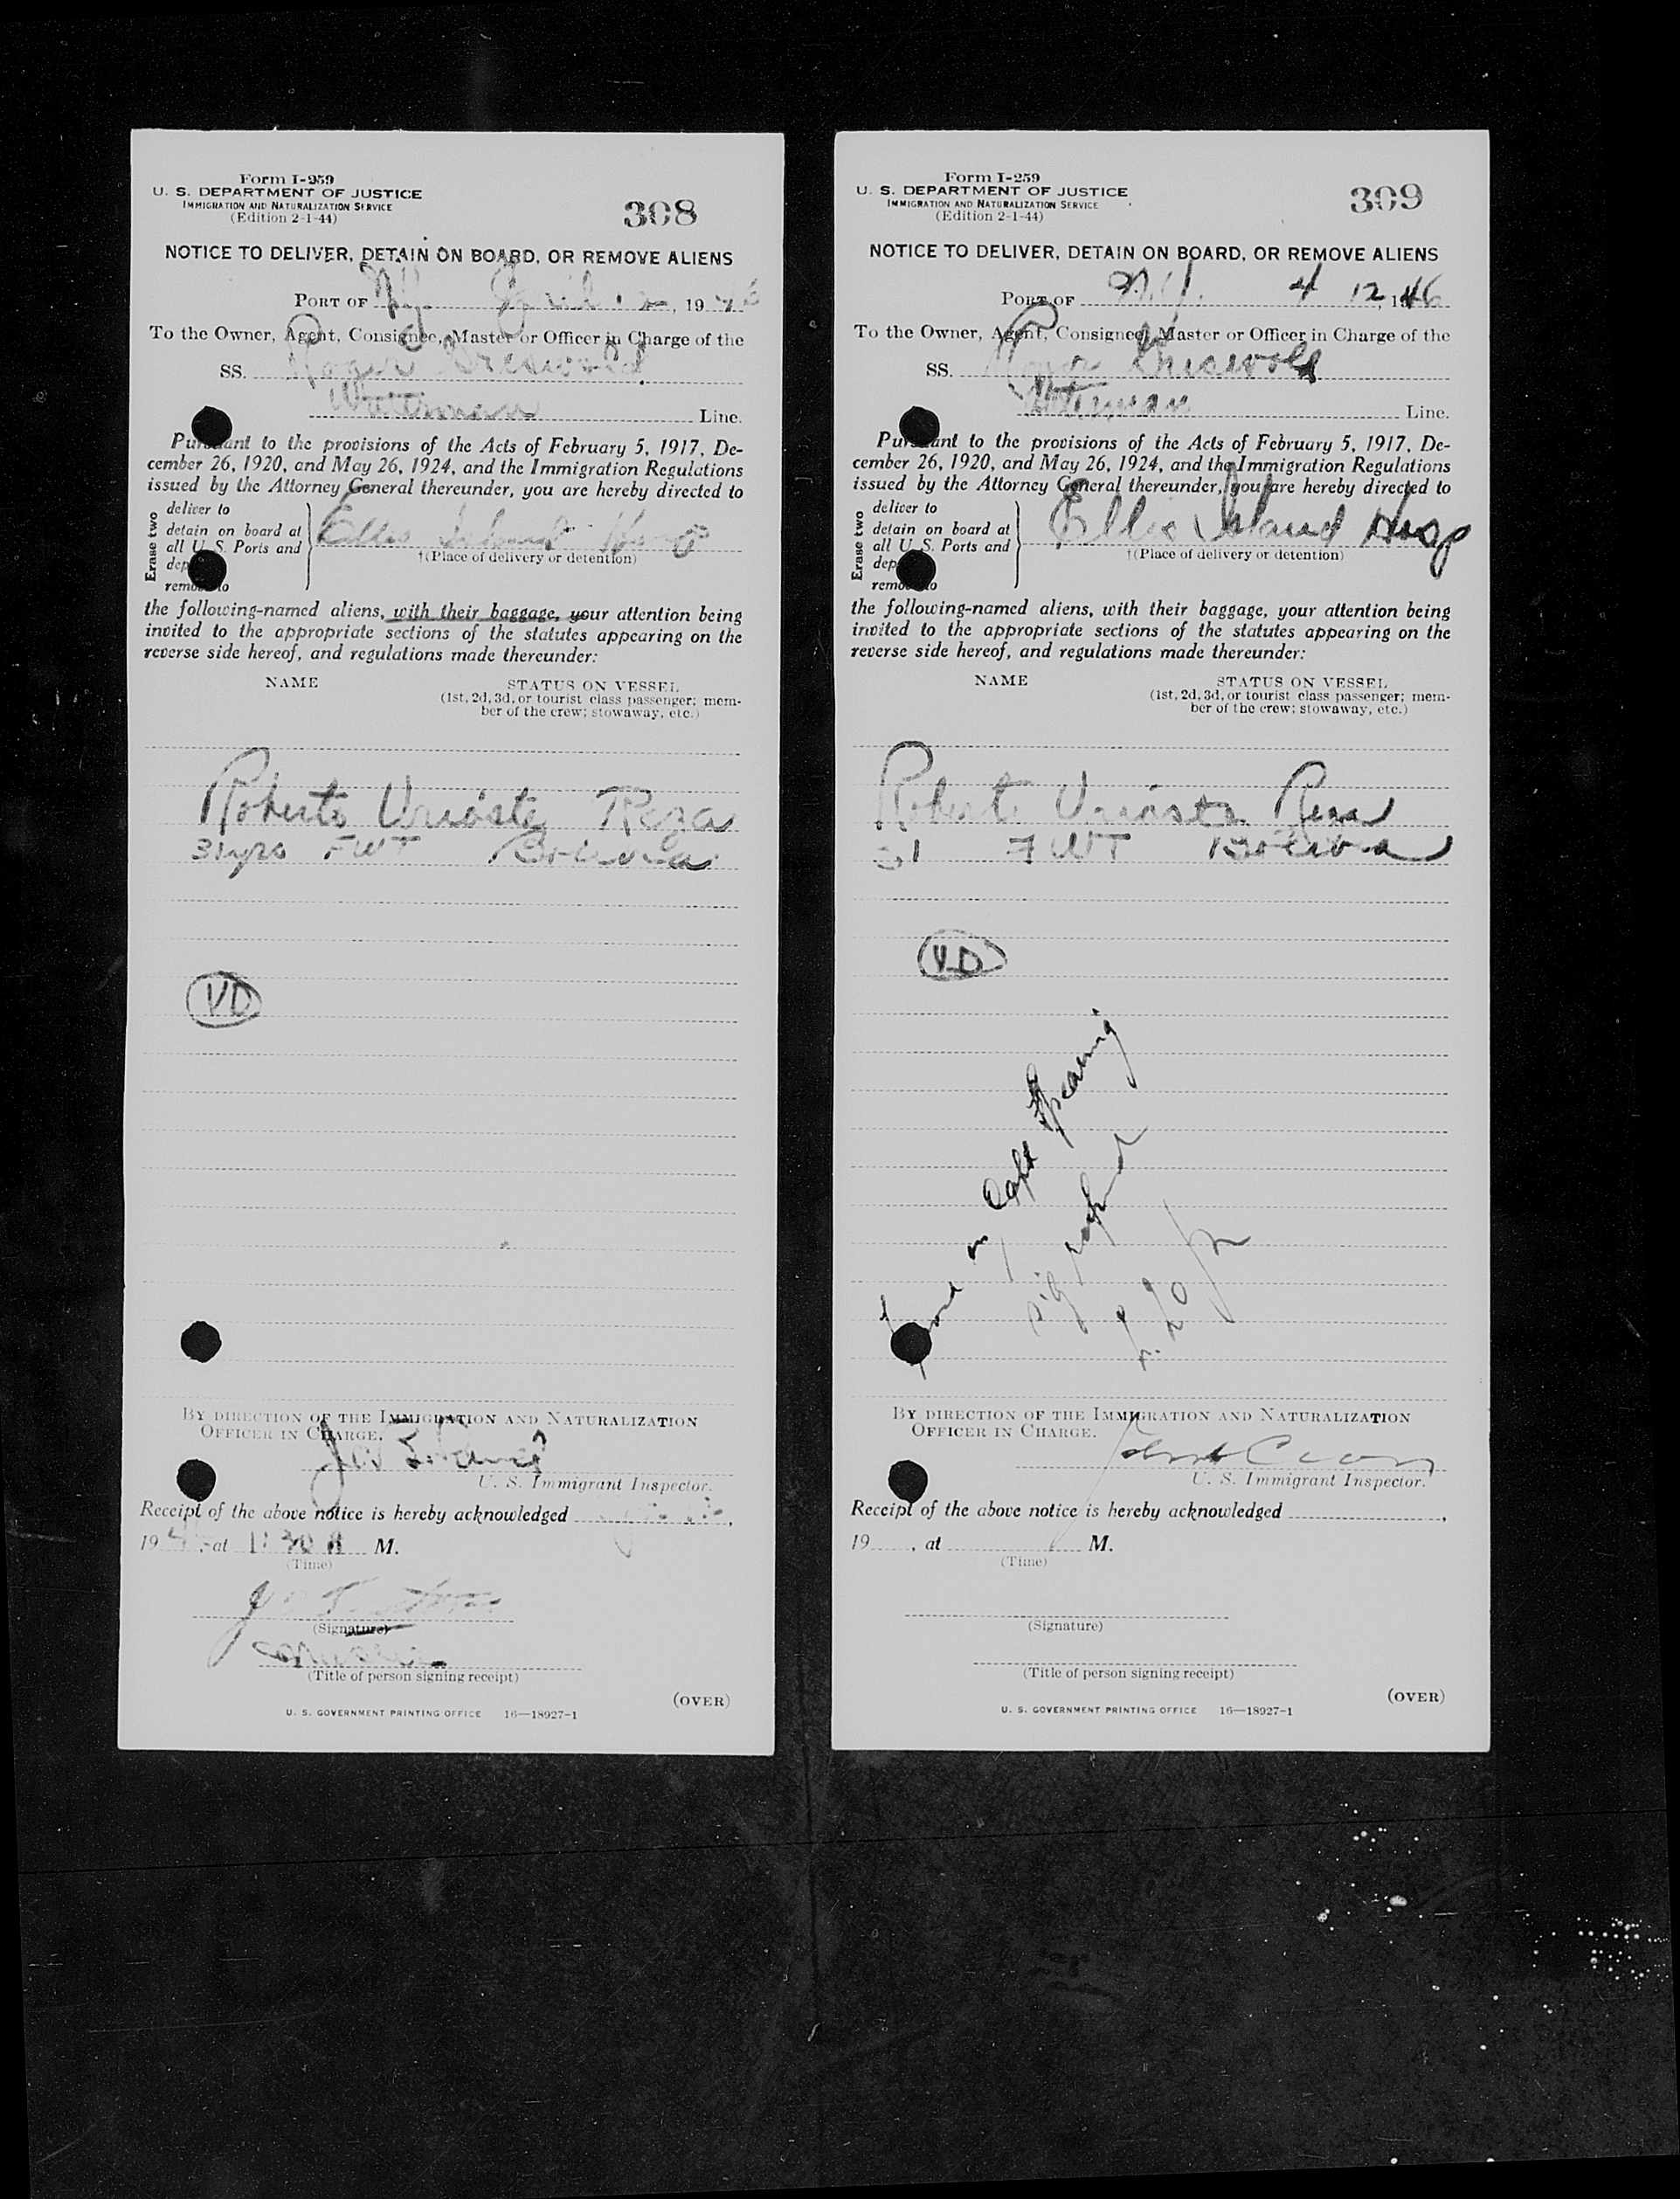 Form I-259
U. S. DEPARTMENT OF JUSTICE
IMMIGRATION AND NATURALIZATION SERVICE
(Edition 2-1-44)
308
NOTICE TO DELIVER, DETAIN ON BOARD, OR REMOVE ALIENS
PORT OF N.Y. April 12, 1946
To the Owner, Agent, Consignee, Master or Officer in Charge of the
SS. Roger Griswold
Waterman Line.
Pursuant to the provisions of the Acts of February 5, 1917, De-
cember 26, 1920, and May 26, 1924, and the Immigration Regulations
issued by the Attorney General thereunder, you are hereby directed to
Erase two
deliver to
detain on board at
all U. S. Ports and
dep
remove to
Ellis Island Hosp
†(Place of delivery or detention)
the following-named aliens, with their baggage, your attention being
invited to the appropriate sections of the statutes appearing on the
reverse side hereof, and regulations made thereunder:
NAME STATUS ON VESSEL
(1st, 2d, 3d, or tourist class passenger; mem-
ber of the crew; stowaway, etc.)
Roberto Urioste Reza
31 yrs FWT Bolivia
VD
BY DIRECTION OF THE IMMIGRATION AND NATURALIZATION
OFFICER IN CHARGE.
U. S. Immigrant Inspector.
Receipt of the above notice is hereby acknowledged
19 , at 11 30 A M.
(Time)
(Signature)
(Title of person signing receipt)
(OVER)
U. S. GOVERNMENT PRINTING OFFICE 16—18927-1
Form I-259
U. S. DEPARTMENT OF JUSTICE
IMMIGRATION AND NATURALIZATION SERVICE
(Edition 2-1-44)
309
NOTICE TO DELIVER, DETAIN ON BOARD, OR REMOVE ALIENS
PORT OF N.Y. 4 12, 1946
To the Owner, Agent, Consignee, Master or Officer in Charge of the
SS. Roger Griswold
Waterman Line.
Pursuant to the provisions of the Acts of February 5, 1917, De-
cember 26, 1920, and May 26, 1924, and the Immigration Regulations
issued by the Attorney General thereunder, you are hereby directed to
Erase two
deliver to
detain on board at
all U. S. Ports and
dep
remove to
Ellis Island Hosp
†(Place of delivery or detention)
the following-named aliens, with their baggage, your attention being
invited to the appropriate sections of the statutes appearing on the
reverse side hereof, and regulations made thereunder:
NAME STATUS ON VESSEL
(1st, 2d, 3d, or tourist class passenger; mem-
ber of the crew; stowaway, etc.)
Roberto Urioste Reza
31 FWT Bolivia
VD
on Capt Spearing
sig refused
BY DIRECTION OF THE IMMIGRATION AND NATURALIZATION
OFFICER IN CHARGE.
U. S. Immigrant Inspector.
Receipt of the above notice is hereby acknowledged
19 , at M.
(Time)
(Signature)
(Title of person signing receipt)
(OVER)
U. S. GOVERNMENT PRINTING OFFICE 16—18927-1